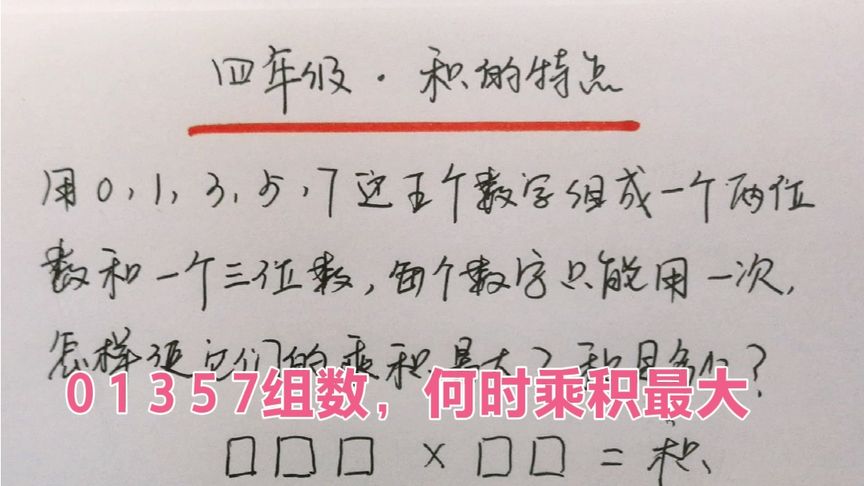 四年级·积的特点
用0,1,3,5,7这五个数字组成一个两位
数和一个三位数,每个数字只能用一次,
怎样使它们的乘积最大?积是多少?
01357组数，何时乘积最大
□□□×□□=积